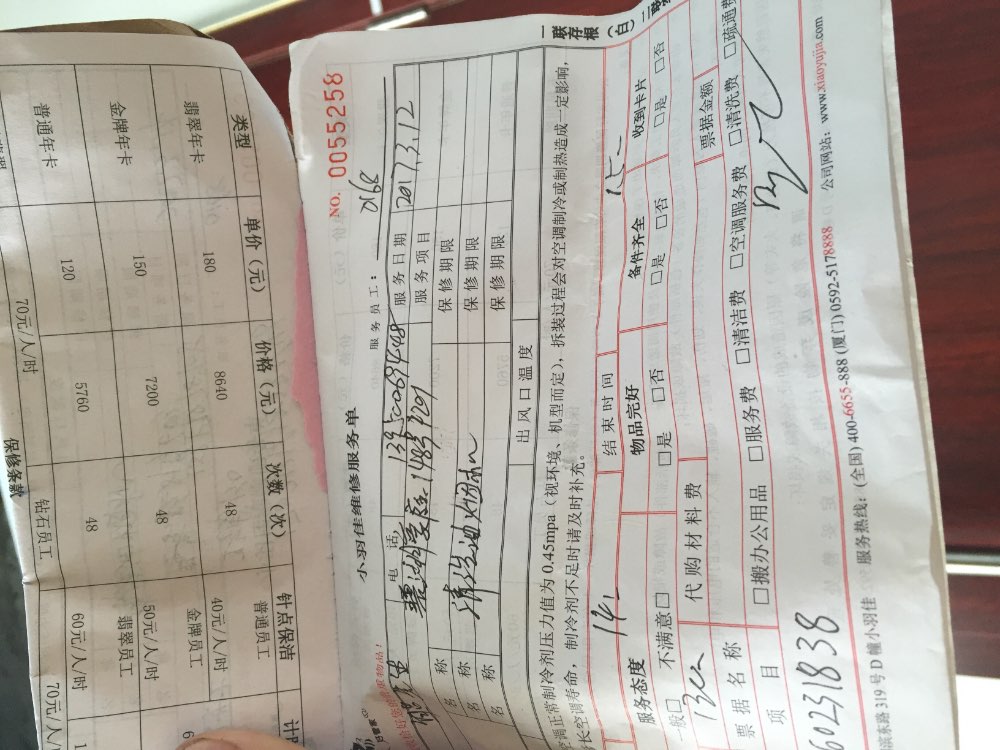 类型
单价（元）
价格（元）
次数（次）
翡翠年卡
180
8640
48
金牌年卡
150
7200
48
普通年卡
120
5760
48
钟点保洁
普通员工
40元/人/时
金牌员工
50元/人/时
翡翠员工
60元/人/时
钻石员工
70元/人/时
70元/人/时
保修条款
一联存根（白）
NO. 0055258
小羽佳维修服务单
服务员工：
电话
服务日期
2017.3.12
服务项目
名称
清洗油烟机
保修期限
名称
保修期限
名称
保修期限
出风口温度
空调正常制冷剂压力值为0.45mpa（视环境、机型而定），拆装过程会对空调制冷或制热造成一定影响，
长空调寿命，制冷剂不足时请及时补充。
14
结束时间
15
服务态度
物品完好
备件齐全
收到卡片
一般□ 不满意□
□是 □否
□是 □否
□是 □否
代购材料费
票据名称
票据金额
项目
□搬办公用品 □服务费 □清洁费 □空调服务费 □清洗费 □疏通费
60231838
滨东路319号D幢小羽佳 服务热线：(全国) 400-6655-888 (厦门) 0592-5178888 公司网站：www.xiaoyujia.com